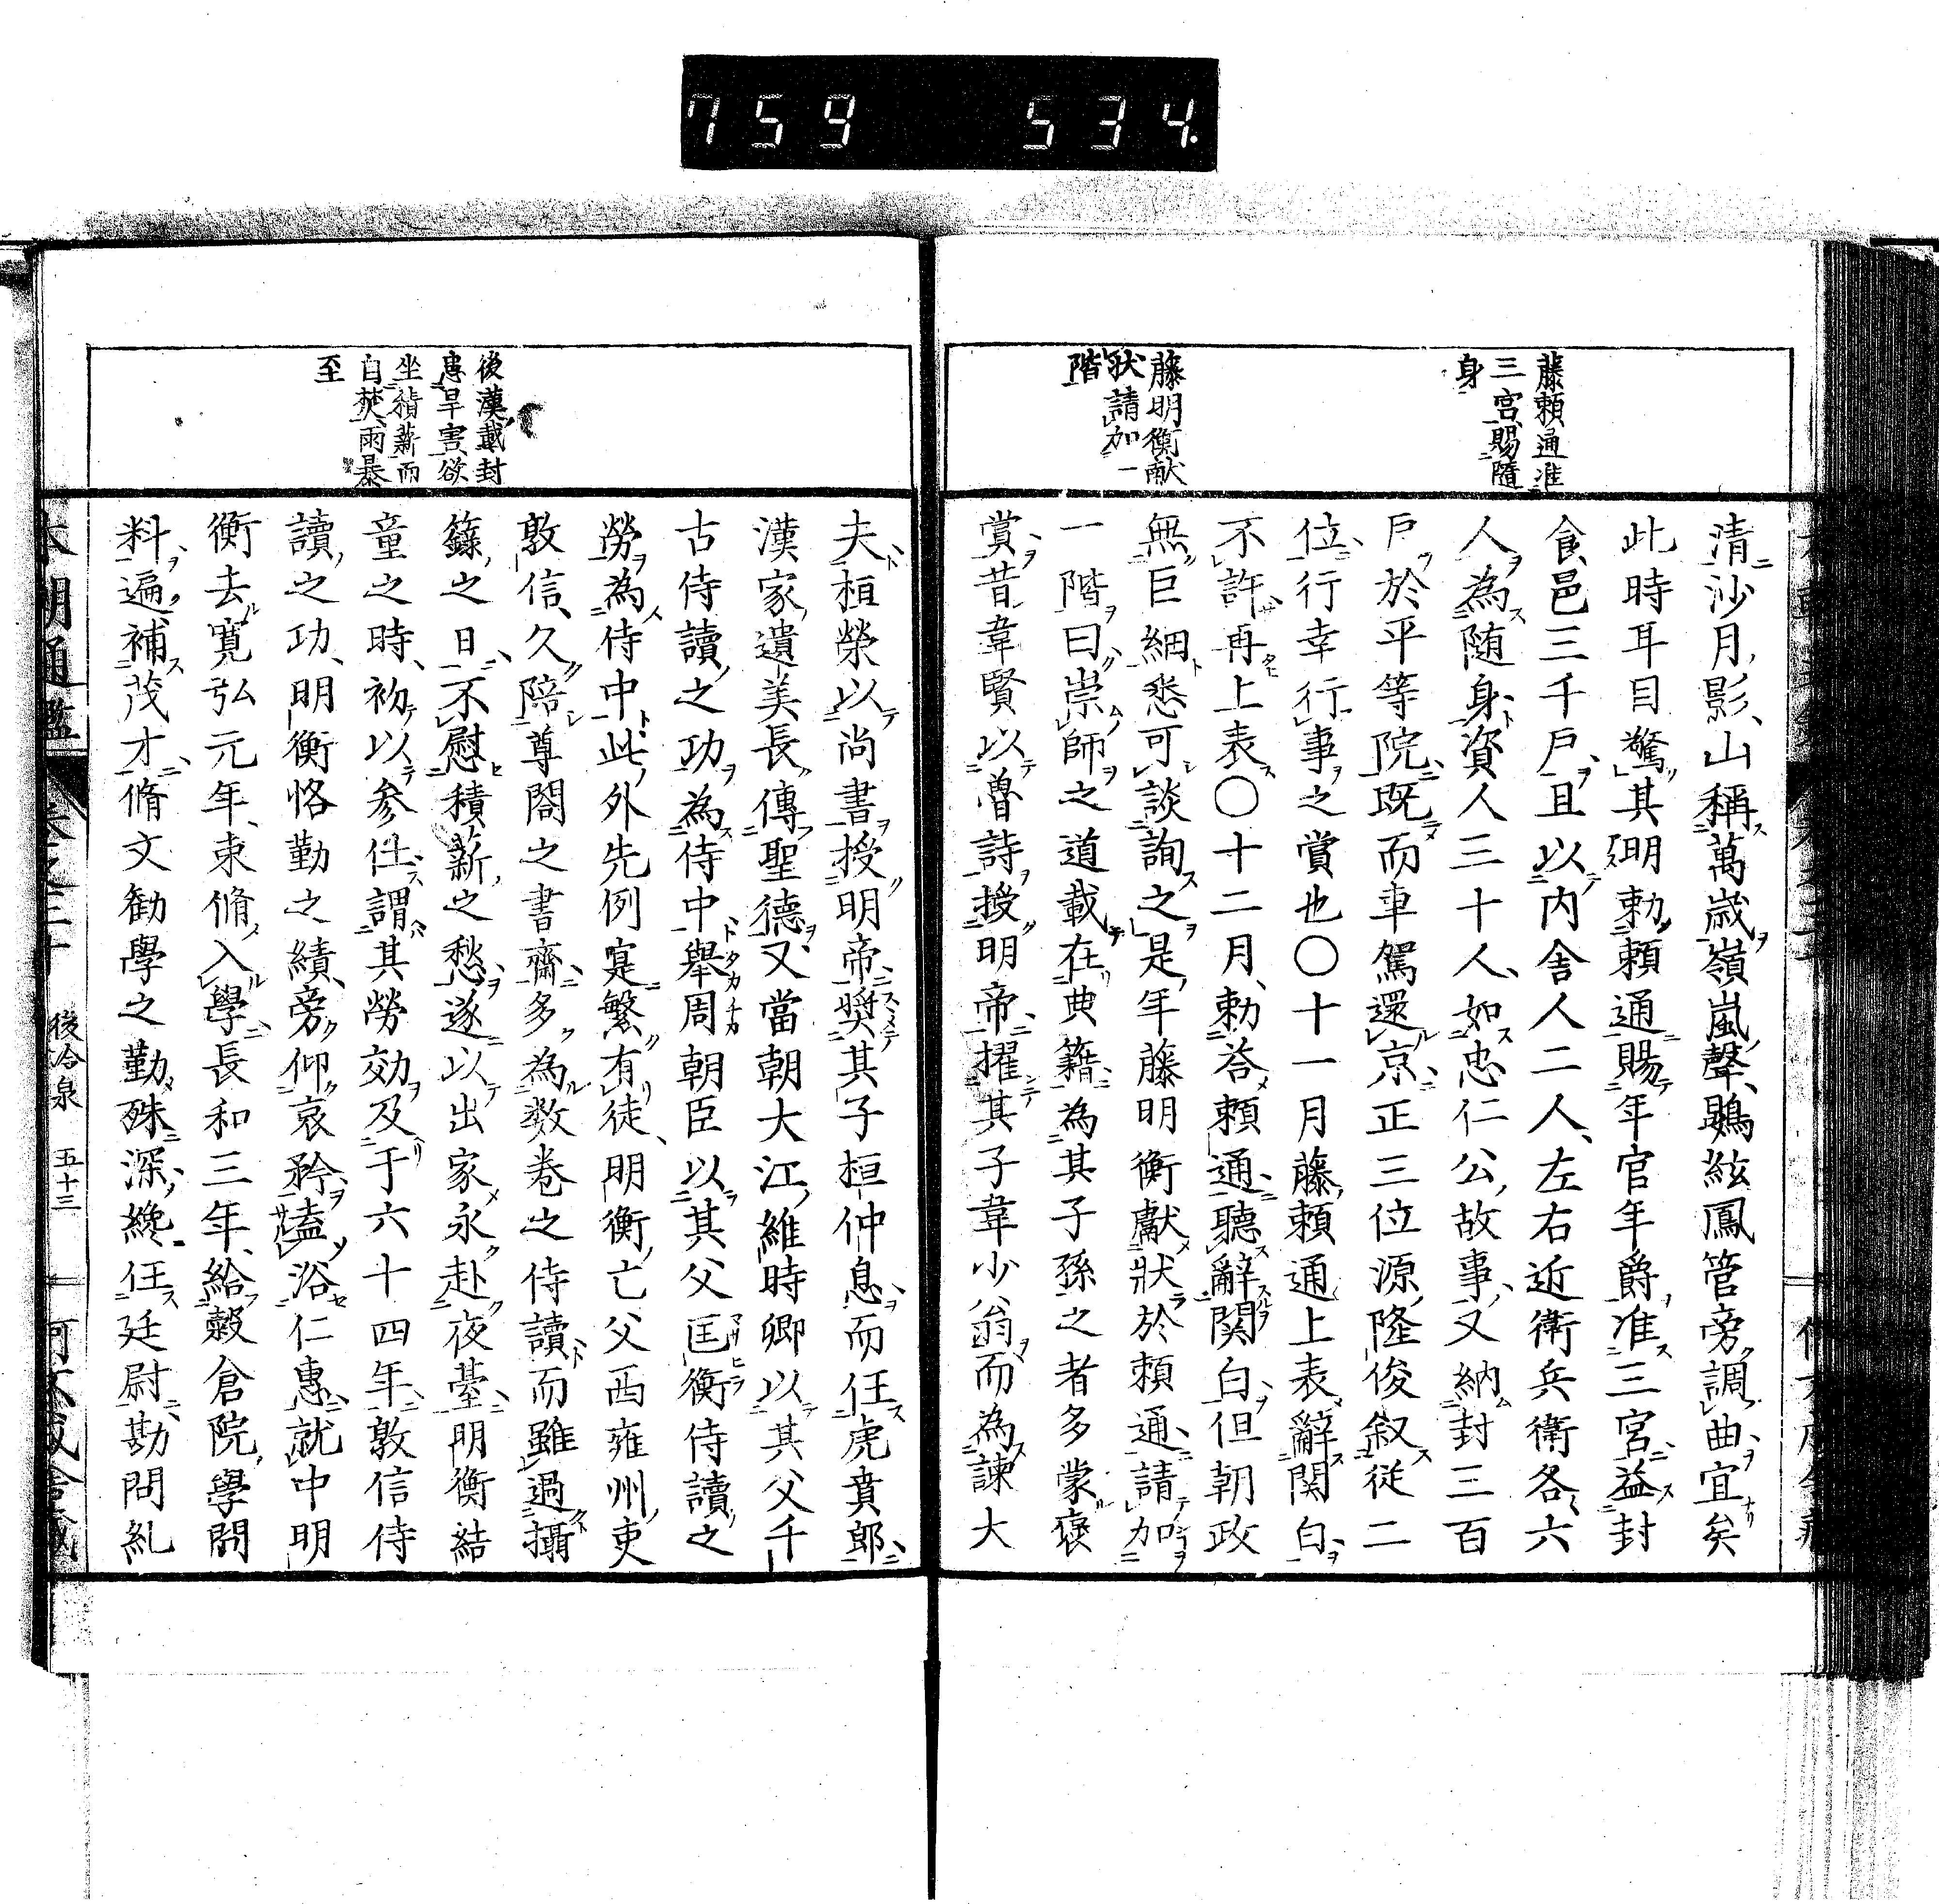 759 534.
藤賴通准
三宮賜隨
身
藤明衡献
狀請加一
階
清沙月影山稱萬歳嶺嵐聲鵾絃鳳管旁調曲宜矣
此時耳目驚其明勅賴通賜年官年爵准三宮益封
食邑三千戸且以内舎人二人左右近衛兵衛各六
人為随身資人三十人如忠仁公故事又納封三百
戸於平等院既而車駕還京正三位源隆俊叙従二
位行幸行事之賞也〇十一月藤賴通上表辭関白
不許再上表〇十二月勅荅賴通聽辭関白但朝政
無巨細悉可談詢之是年藤明衡獻狀於賴通請加
一階曰崇師之道載在典籍為其子孫之者多蒙褒
賞昔韋賢以魯詩授明帝擢其子韋少翁而為諫大
後漢戴封
患旱害欲
坐積薪而
自焚雨暴
至
夫桓榮以尚書授明帝奬其子桓仲息而任虎賁郎
漢家遺美長傳聖德又當朝大江維時卿以其父千
古侍讀之功為侍中舉周朝臣以其父匡衡侍讀之
勞為侍中此外先例寔繁有徒明衡亡父西雍州吏
敦信久陪尊閤之書齋多為数巻之侍讀而雖過攝
籙之日不慰積薪之愁遂以出家永赴夜臺明衡結
童之時初以参仕謂其勞効及于六十四年敦信侍
讀之功明衡恪勤之績旁仰哀矜盍浴仁惠就中明
衡去寛弘元年束脩入學長和三年給穀倉院學問
料遍補茂才脩文勧學之勤殊深纔任廷尉勘問糺
本朝通鑑 巻之三十 後冷泉 五十三